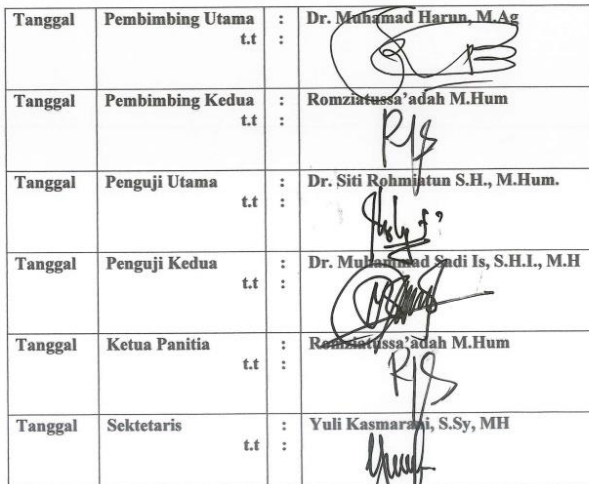 Tanggal Pembimbing Utama : Dr. Muhamad Harun, M.Ag
t.t :
Tanggal Pembimbing Kedua : Romziatussa'adah M.Hum
t.t :
Tanggal Penguji Utama : Dr. Siti Rohmiatun S.H., M.Hum.
t.t :
Tanggal Penguji Kedua : Dr. Muhammad Sadi Is, S.H.I., M.H
t.t :
Tanggal Ketua Panitia : Romziatussa'adah M.Hum
t.t :
Tanggal Sektetaris : Yuli Kasmarani, S.Sy, MH
t.t :